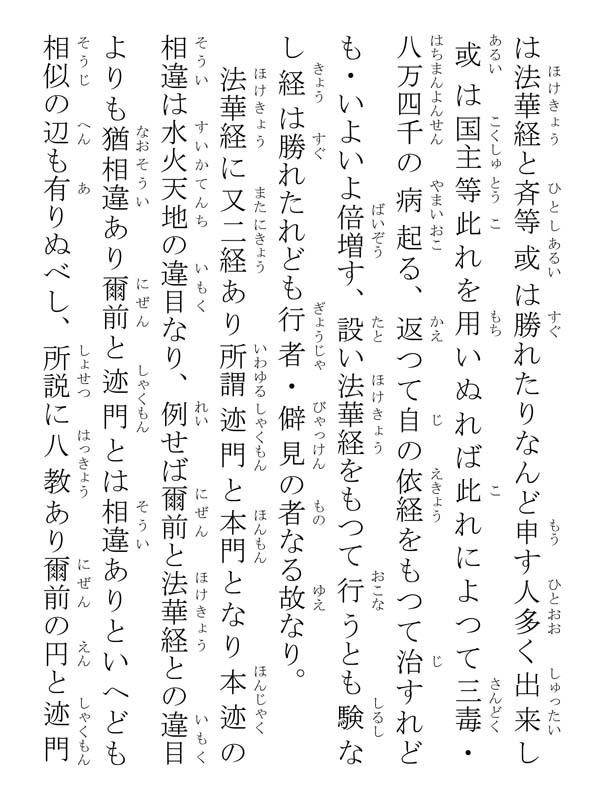 は法華経と斉等或は勝れたりなんど申す人多く出来し
或は国主等此れを用いぬれば此れによつて三毒・
八万四千の病起る、返つて自の依経をもつて治すれど
も・いよいよ倍増す、設い法華経をもつて行うとも験な
し経は勝れたれども行者・僻見の者なる故なり。
法華経に又二経あり所謂迹門と本門となり本迹の
相違は水火天地の違目なり、例せば爾前と法華経との違目
よりも猶相違あり爾前と迹門とは相違ありといへども
相似の辺も有りぬべし、所説に八教あり爾前の円と迹門